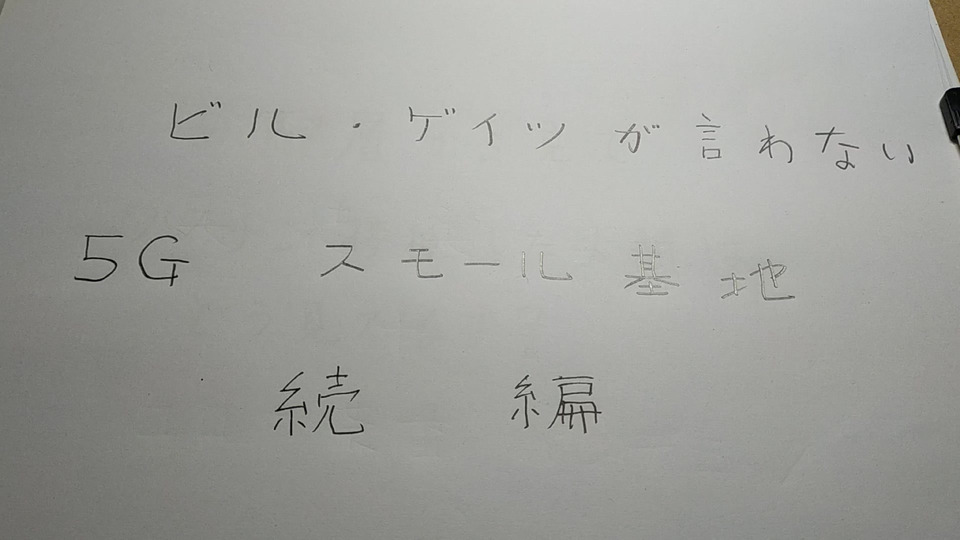 ビル・ゲイツが言わない
5G スモール基地
続編